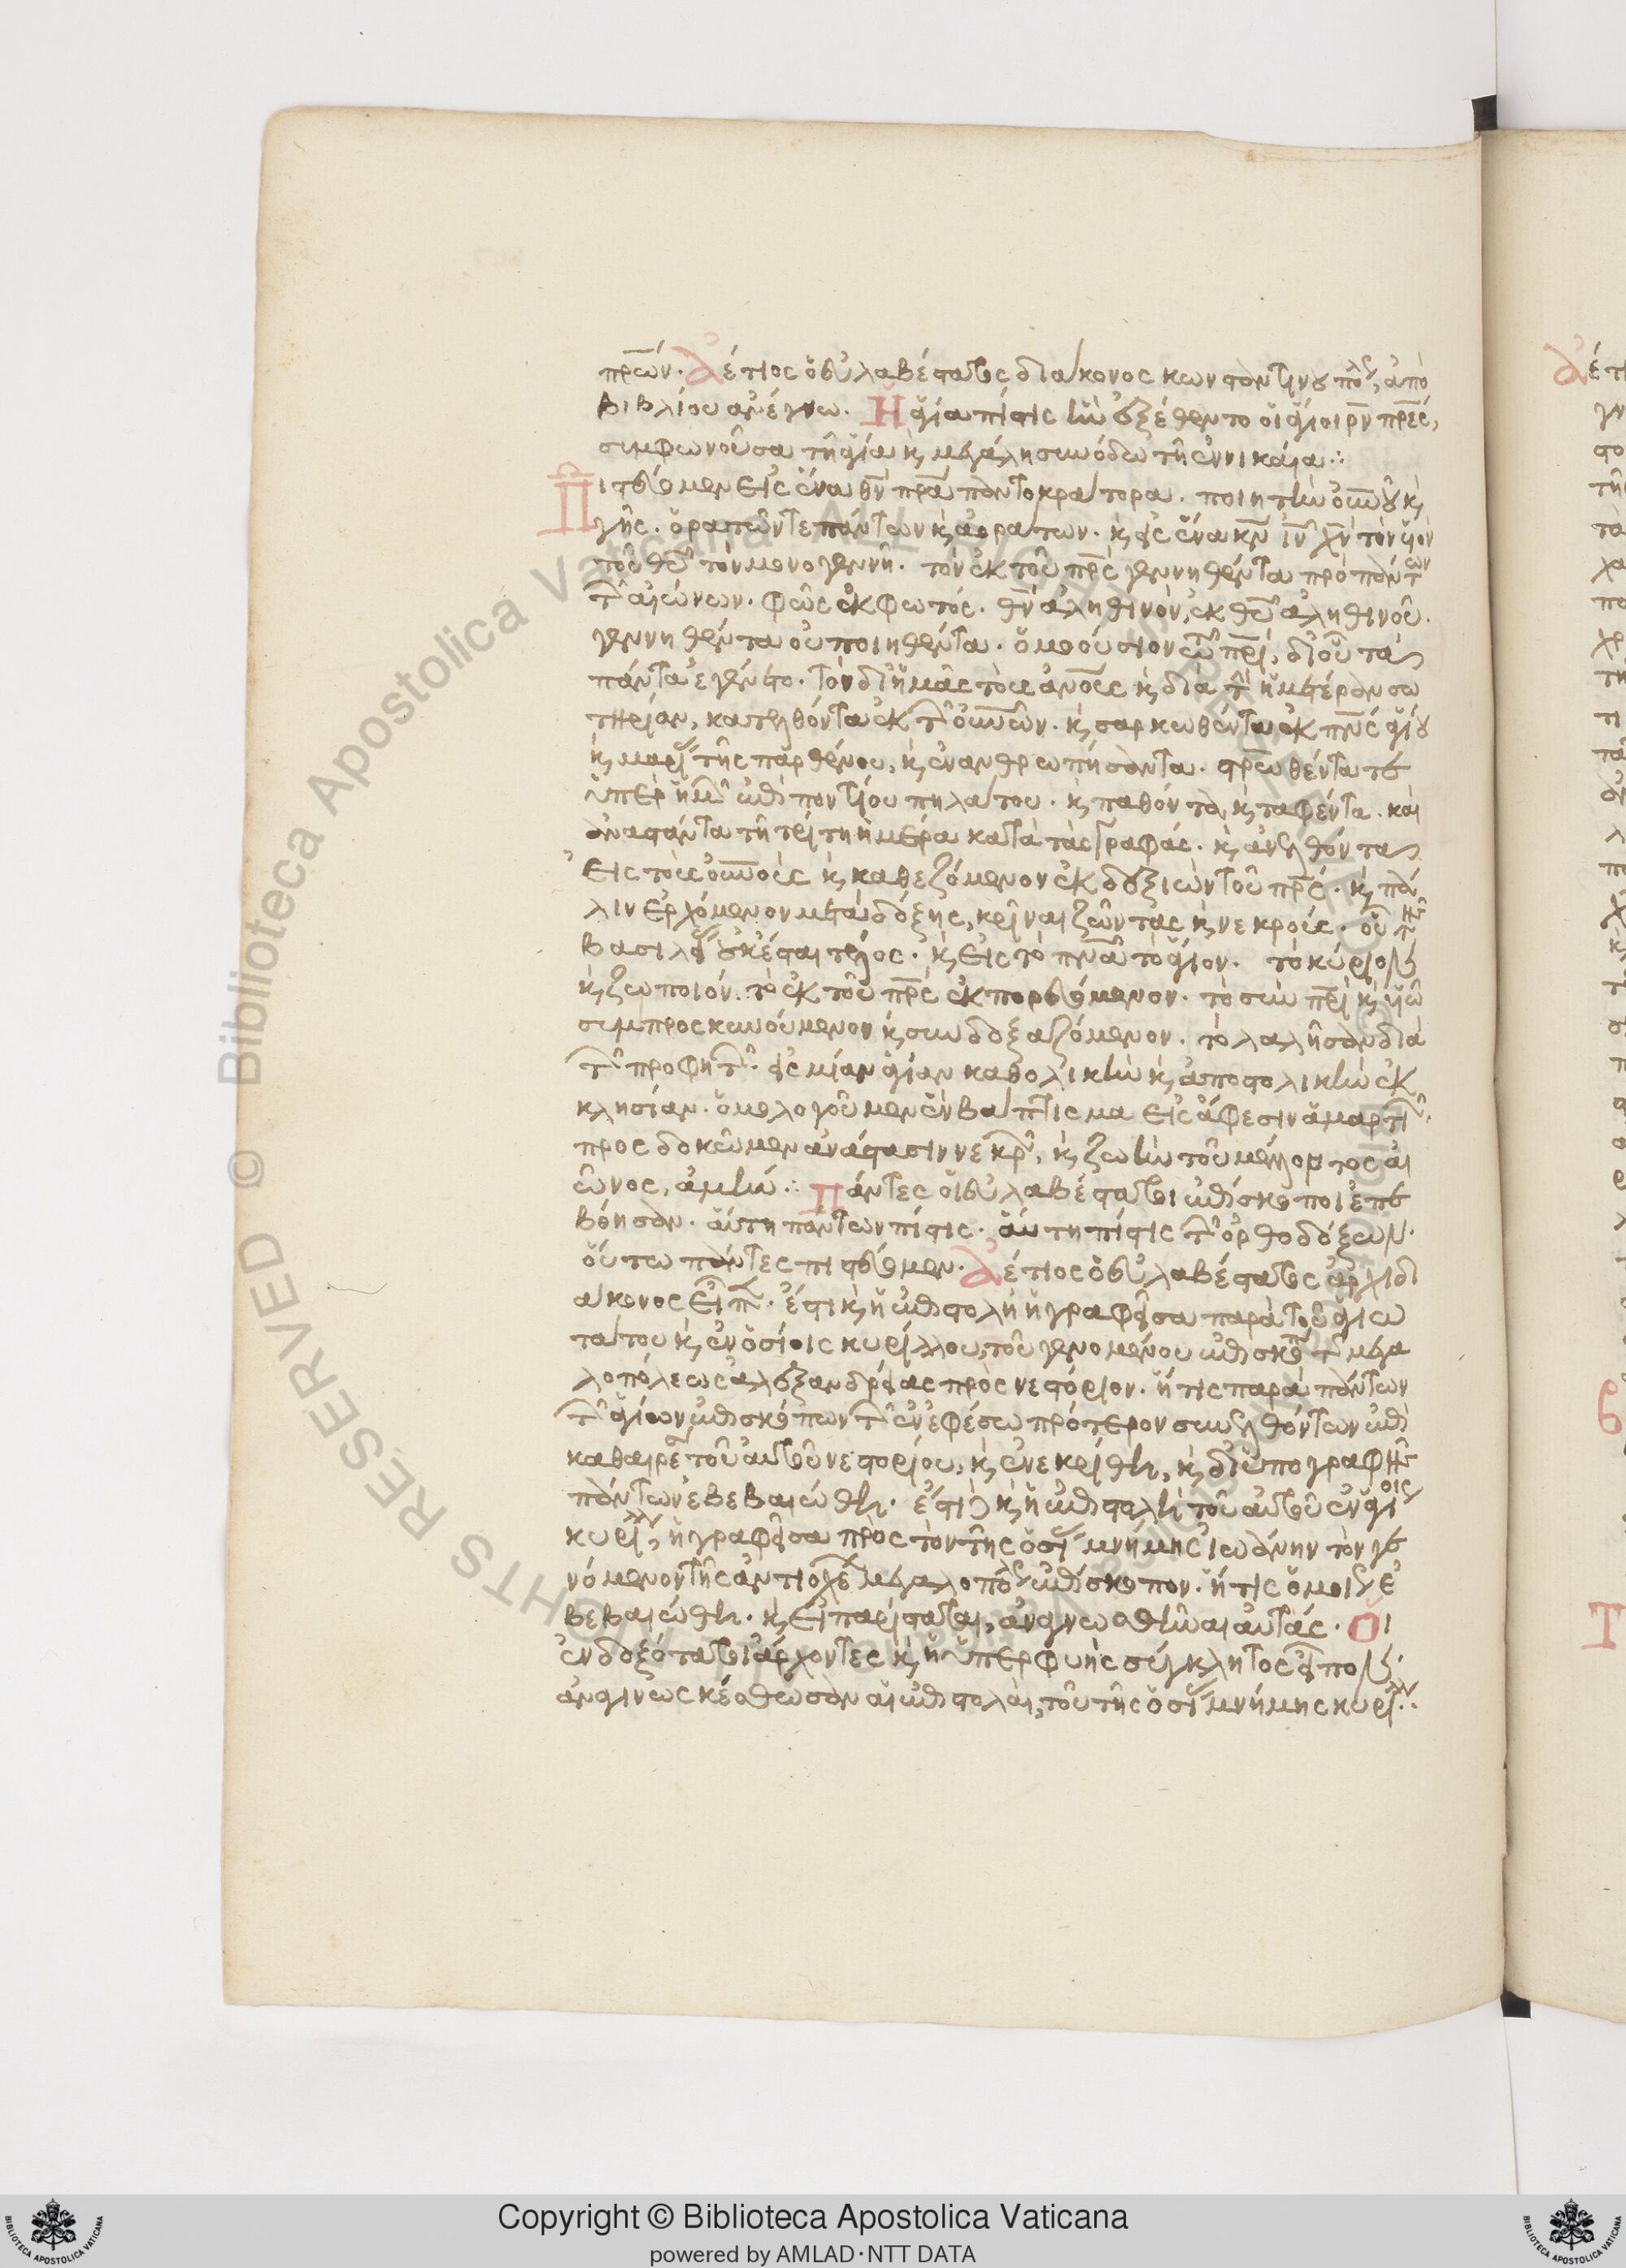 πρ̅ων. Ἀέτιος ὁ εὐλαβέστατος διάκονος κωνσταντίνου πόλ, ἀπὸ
βιβλίου ἀνέγνω. Ἡ ἁγία πίστις ἣν ἐξέθεντο οἱ ἅγιοι ρν̅ πρ̅ες,
συμφωνοῦσα τῆ ἁγία κ μεγάλη συνόδω τῆ ἐν νικαία:
Πιστεύομεν εἰς ἕνα θν̅ πρ̅α παντοκράτορα. ποιητὴν οὐνοῦ κ
γῆς. ὁρατῶν τε πάντων κ ἀοράτων. κ εἰς ἕνα κν̅ ιν̅ χν̅ τὸν υἱὸν
τοῦ θυ̅ τὸν μονογενῆ. τὸν ἐκ τοῦ πρ̅ς γεννηθέντα πρὸ πάντων
τῶν αἰώνων. φῶς ἐκ φωτός. θν̅ ἀληθινὸν, ἐκ θυ̅ ἀληθινοῦ.
γεννηθέντα οὐ ποιηθέντα. ὁμοούσιον τῶ πρ̅ι, δι οὗ τὰ
πάντα ἐγένετο. τὸν δι ἡμᾶς τοὺς ἀν̅ους κ διὰ τὴν ἡμετέραν σω
τηρίαν, κατελθόντα ἐκ τῶν οὐν̅ῶν. κ σαρκωθέντα ἐκ πν̅ς ἁγίου
κ μαρί τῆς παρθένου, κ ἐνανθρωπήσαντα. στρ̅ωθέντα τε
ὑπὲρ ἡμῶν ἐπὶ ποντίου πηλάτου. κ παθόντα, κ ταφέντα. καὶ
ἀναστάντα τῆ τρίτη ἡμέρα κατὰ τὰς γραφάς. κ ἀνελθόντα
εἰς τοὺς οὐν̅οὺς κ καθεζόμενον ἐκ δεξιῶν τοῦ πρ̅ς. κ πά
λιν ἐρχόμενον μετὰ δόξης, κρῖναι ζῶντας κ νεκρούς. οὗ τῆς
βασιλεί οὐκ ἔσται τέλος. κ εἰς τὸ πν̅α τὸ ἅγιον. τὸ κύριον
κ ζωποιόν. τὸ ἐκ τοῦ πρ̅ς ἐκπορευόμενον. τὸ σὺν πρ̅ι κ υἱῶ
συμπροσκυνούμενον κ συνδοξαζόμενον. τὸ λαλῆσαν διὰ
τῶν προφητῶν. εἰς μίαν ἁγίαν καθολικὴν κ ἀποστολικὴν ἐκ
κλησίαν. ὁμολογοῦμεν ἓν βάπτισμα εἰς ἄφεσιν ἁμαρτιῶν.
προσδοκῶμεν ἀνάστασιν νεκρῶν, κ ζωὴν τοῦ μέλλοντος αἰ
ῶνος, ἀμήν: Πάντες οἱ εὐλαβέστατοι ἐπίσκοποι ἐπε
βόησαν. αὕτη πάντων πίστις. αὕτη πίστις τῶν ὀρθοδόξων.
οὕτω πάντες πιστεύομεν. Ἀέτιος ὁ εὐλαβέστατος ἀρχιδι
άκονος εἶπ. ἔστι κ ἡ ἐπιστολὴ ἡ γραφεῖσα παρὰ τοῦ ἁγιω
τάτου κ ἐν ὁσίοις κυρίλλου, τοῦ γενομένου ἐπισκόπ τῆς μεγα
λοπόλεως ἀλεξανδρείας πρὸς νεστόριον. ἥτις παρὰ πάντων
τῶν ἁγίων ἐπισκόπων τῶν ἐν ἐφέσω πρότερον συνελθόντων ἐπὶ
καθαιρέσ τοῦ αὐτοῦ νεστορίου, κ ἐνεκρίθη, κ δι ὑπογραφῆς
πάντων ἐβεβαιώθη. ἔστι κ ἡ ἐπιστολὴ τοῦ αὐτοῦ ἐν ἁγίοις
κυρίλλ, ἡ γραφεῖσα πρὸς τὸν τῆς ὁσί μνήμης ἰωάννην τὸν γε
νόμενον τῆς ἀντιοχέ μεγαλοπόλ ἐπίσκοπον. ἥτις ὁμοίως ἐ
βεβαιώθη. κ εἰ παρίσταται, ἀναγνωσθῆναι αὐτάς. Οἱ
ἐνδοξότατοι ἄρχοντες κ ἡ ὑπερφυὴς σύγκλητος εἶπον.
ἀναγινωσκέσθωσαν αἱ ἐπιστολαὶ, τοῦ τῆς ὁσί μνήμης κυρίλλ:
Copyright © Biblioteca Apostolica Vaticana
powered by AMLAD·NTT DATA